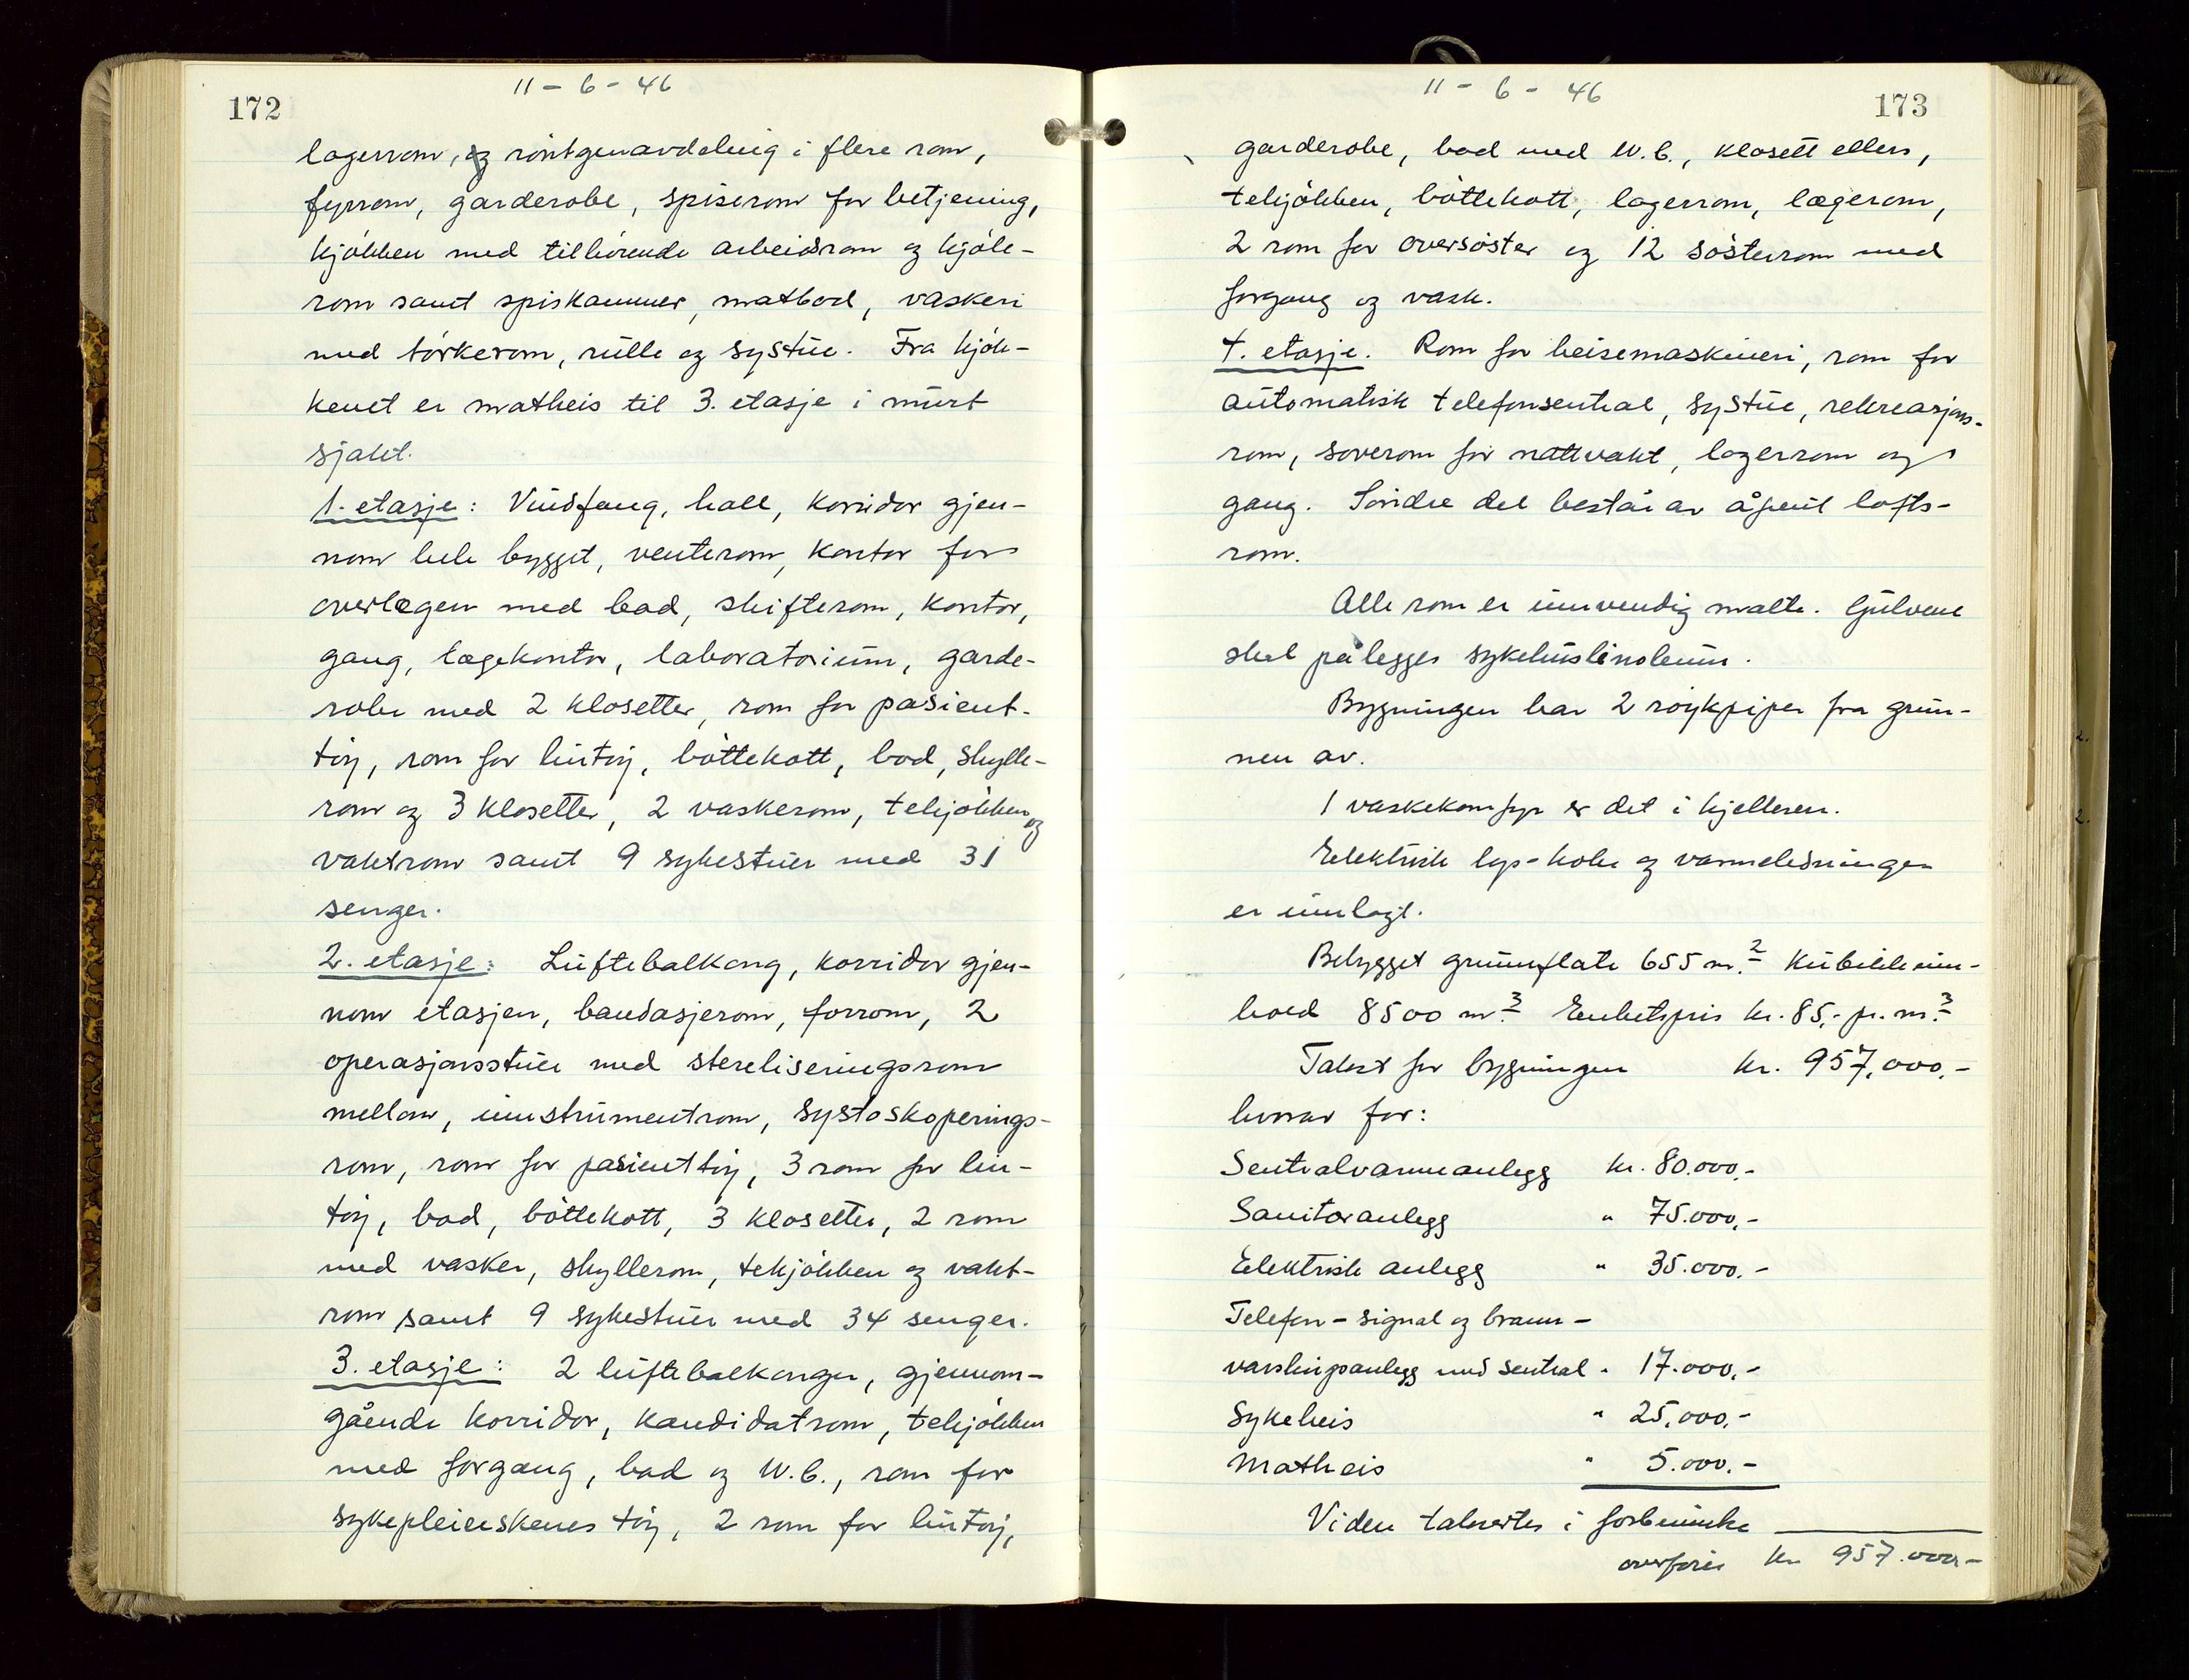 172
11 - 6 - 46
lagerrom, og röntgenavdeling i flere rom,
fyrrom, garderobe, spiserom for betjening,
kjökken med tilhörende arbeidsrom og kjöle-
rom samt spiskammer, matbod, vaskeri
med törkerom, rulle og systue. Fra kjök-
kenet er matheis til 3. etasje i murt
sjakt.
1. etasje: Vindfang, hall, korridor gjen-
nom hele bygget, venterom, kontor for
overlægen med bad, skifterom, kontor,
gang, lægekontor, laboratorium, garde-
robe med 2 klosetter, rom for pasient-
töy, rom for lintöy, böttekott, bod, skylle-
rom og 3 klosetter, 2 vaskerom, tekjökken og
vaktrom samt 9 sykestuer med 31
senger.
2. etasje: Luftebalkong, korridor gjen-
nom etasjen, bandasjerom, forrom, 2
operasjonsstuer med stereliseringsrom
mellom, innstrumentrom, systoskoperings-
rom, rom for pasienttöy, 3 rom for lin-
töy, bad, böttekott, 3 klosetter, 2 rom
med vasker, skyllerom, tekjökken og vakt-
rom samt 9 sykestuer med 34 senger.
3. etasje: 2 luftebalkonger, gjennom-
gående korridor, kandidatrom, tekjökken
med forgang, bad og W.C., rom for
sykepleierskenes töy, 2 rom for lintöy,
173
11 - 6 - 46
garderobe, bad med W.C., klosett ellers,
tekjökken, böttekott, lagerrom, lægerom,
2 rom for oversöster og 12 sösterrom med
forgang og vask.
4. etasje. Rom for heisemaskineri, rom for
automatisk telefonsentral, systue, rekreasjons-
rom, soverom for nattvakt, lagerrom og
gang. Söndre del består av åpent lofts-
rom.
Alle rom er innvendig malte. Gulvene
skal pålegges sykehuslinoleum.
Bygningen har 2 röykpiper fra grun-
nen av.
1 vaskekomfyr er det i kjelleren.
Elektrisk lys- koke og varmeledninger
er innlagt.
Bebygget grunnflate 655 m.2 Kubikkinn-
hold 8500 m.3 Enhetspris kr. 85,- pr. m.3
Takst for bygningen kr. 957,000.-
hvorav for:
Sentralvarmeanlegg kr. 80.000,-
Sanitæranlegg " 75.000,-
Elektrisk anlegg " 35.000.-
Telefon- signal og brann-
varslingsanlegg med sentral " 17.000,-
Sykeheis " 25,000.-
Matheis " 5.000.-
Viden takseres i forbeninke
overföres kr 957.000.-